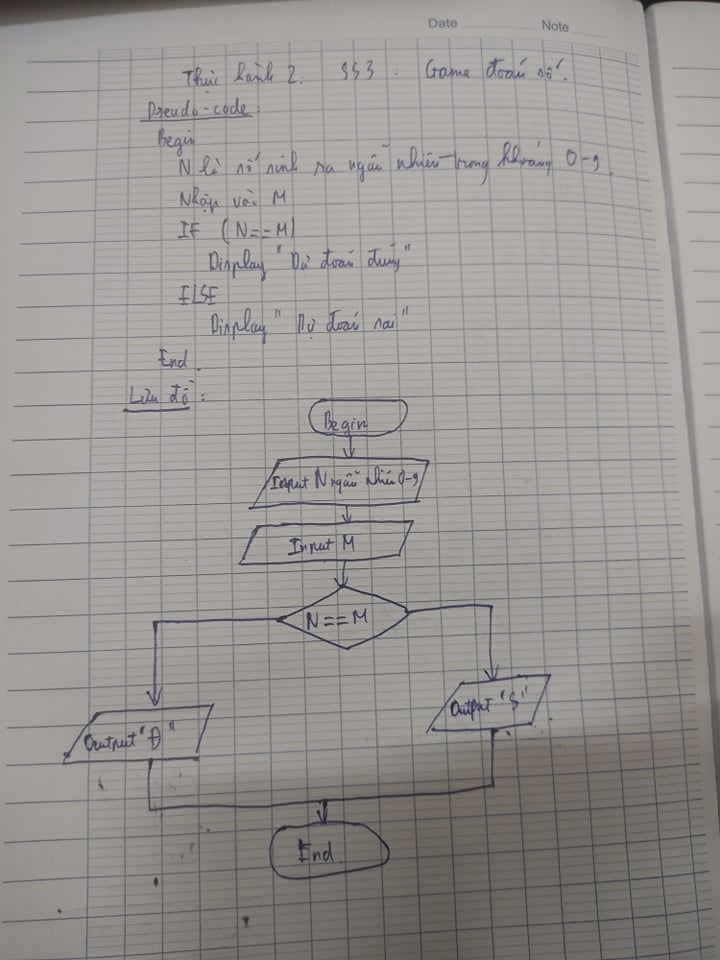 Date Note
Thực hành 2. SS3. Game đoán số.
Pseudo-code:
Begin
N là số sinh ra ngẫu nhiên trong khoảng 0-9
Nhập vào M
IF (N==M)
Display "Dự đoán đúng"
ELSE
Display "Dự đoán sai"
End.
Lưu đồ:
Begin
Input N ngẫu nhiên 0-9
Input M
N==M
Output "S"
Output "Đ"
End